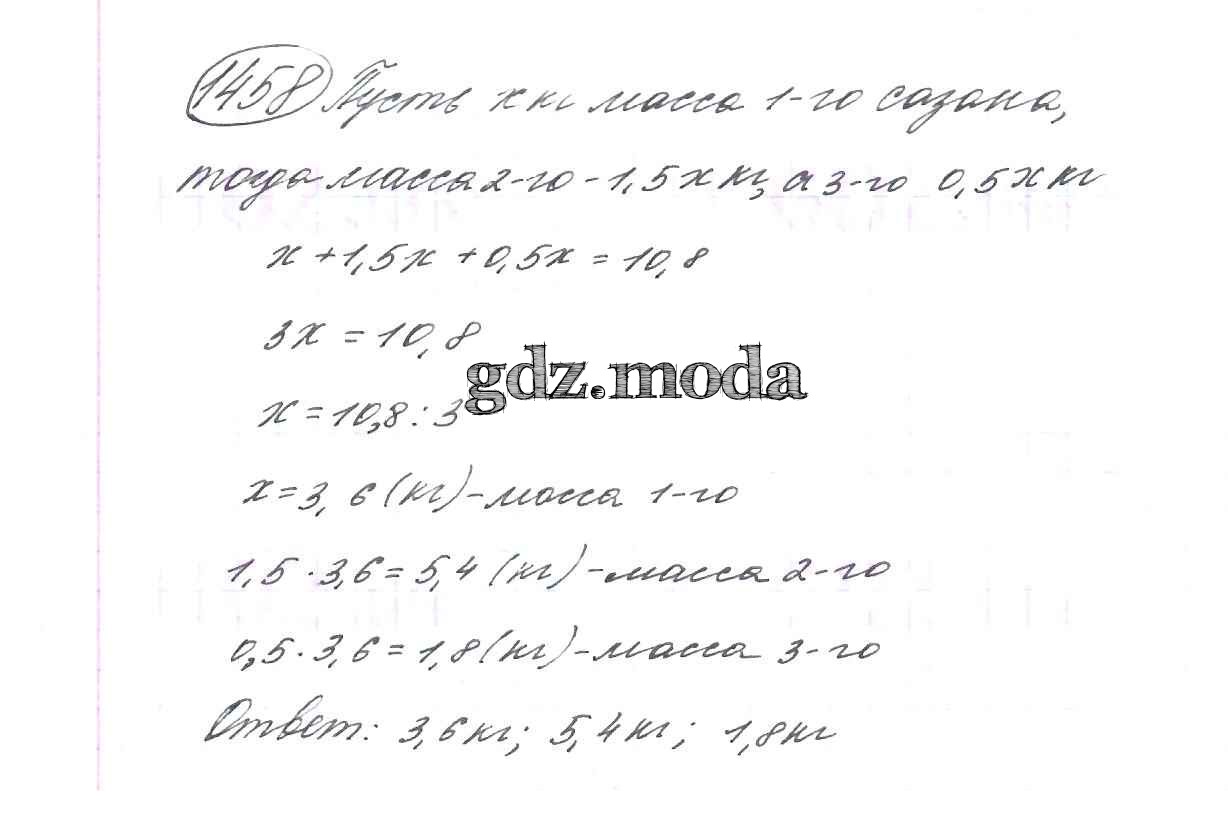 1458 Пусть x кг масса 1-го сазана,
тогда масса 2-го - 1,5x кг, а 3-го 0,5x кг
x + 1,5x + 0,5x = 10,8
3x = 10,8
gdz.moda
x = 10,8 : 3
x = 3,6 (кг) - масса 1-го
1,5 · 3,6 = 5,4 (кг) - масса 2-го
0,5 · 3,6 = 1,8 (кг) - масса 3-го
Ответ: 3,6 кг; 5,4 кг; 1,8 кг